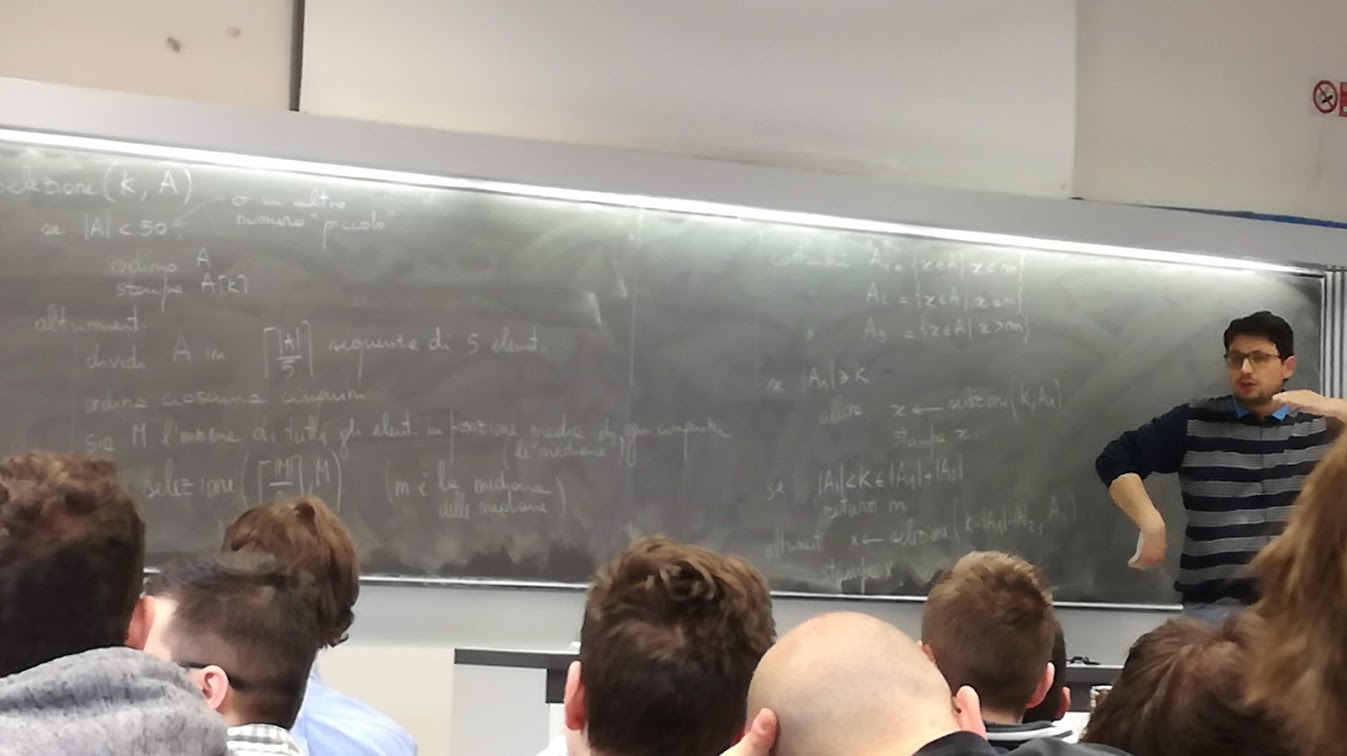 selezione (k, A)
se |A| < 50 o un altro
numero "piccolo"
ordino A
stampo A[k]
altrimenti
dividi A in ⌈|A|/5⌉ sequenze di 5 element.
ordina ciascuna cinquina
Sia M l'insieme di tutti gli element. in posizione media di ogni cinquina
(le mediane)
selezione (⌈|M|/2⌉, M) (m è la mediana
delle mediane)
costruisci A₁ = {x∈A | x<m}
" A₂ = {x∈A | x=m}
" A₃ = {x∈A | x>m}
se |A₁| ≥ K
allora x ← selezione (K, A₁)
stampa x.
se |A₁| < K ≤ |A₁|+|A₂|
return m
altrimenti x ← selezione (K-|A₁|-|A₂|, A₃)
stampa x.